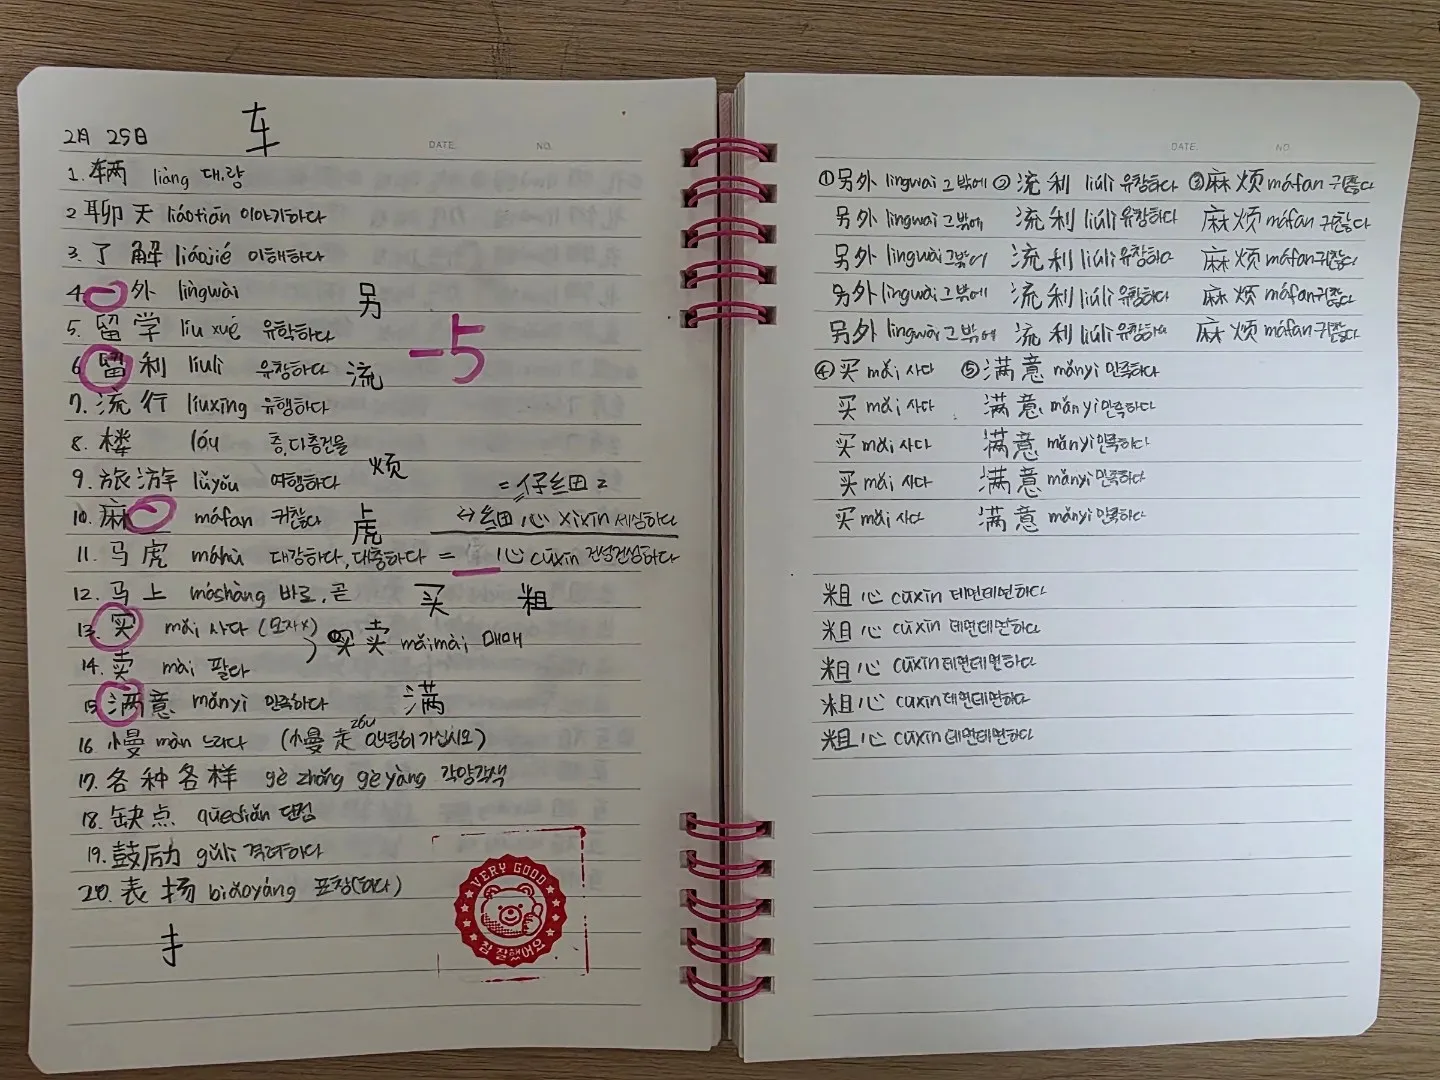 2月 25日 车
DATE. NO.
1. 辆 liàng 대.량
2 聊天 liáotiān 이야기하다
3. 了解 liáojiě 이해하다
4. 外 lìngwài 另
5. 留学 liu xué 유학하다
-5
6 留利 liúlì 유창하다 流
7. 流行 liúxíng 유행하다
8. 楼 lóu 층, 다층건물
9. 旅游 lǚyǒu 여행하다 烦
= 仔细
10. 麻 máfan 귀찮다 虎 ↔ 细心 xìxīn 세심하다
11. 马虎 mǎhù 대강하다, 대충하다 = 心 cūxīn 건성건성하다
12. 马上 mǎshàng 바로, 곧 买 粗
13. 买 mǎi 사다 (모자x) 买卖 mǎimài 매매
14. 卖 mài 팔다
15 满意 mǎnyì 만족하다 满
16 慢 màn 느리다 (慢走 zǒu 안녕히 가십시오)
17. 各种各样 gè zhǒng gè yàng 각양각색
18. 缺点 quēdiǎn 단점
19. 鼓励 gǔlì 격려하다
20. 表扬 biǎoyáng 표창(하다)
VERY GOOD
참 잘했어요
DATE. NO.
①另外 lìngwài 그밖에 ②流利 liúlì 유창하다 ③麻烦 máfan 귀찮다
另外 lingwai 그밖에 流利 liúlì 유창하다 麻烦 máfan 귀찮다
另外 lingwài 그밖에 流利 liúlì 유창하다 麻烦 máfan 귀찮다
另外 lingwài 그밖에 流利 liúlì 유창하다 麻烦 máfan 귀찮다
另外 lingwài 그밖에 流利 liúlì 유창하다 麻烦 máfan 귀찮다
④买 mǎi 사다 ⑤满意 mǎnyì 만족하다
买 mǎi 사다 满意 mǎnyì 만족하다
买 mǎi 사다 满意 mǎnyì 만족하다
买 mǎi 사다 满意 mǎnyì 만족하다
买 mǎi 사다 满意 mǎnyì 만족하다
粗心 cūxīn 데면데면하다
粗心 cūxīn 데면데면하다
粗心 cūxīn 데면데면하다
粗心 cūxīn 데면데면하다
粗心 cūxīn 데면데면하다